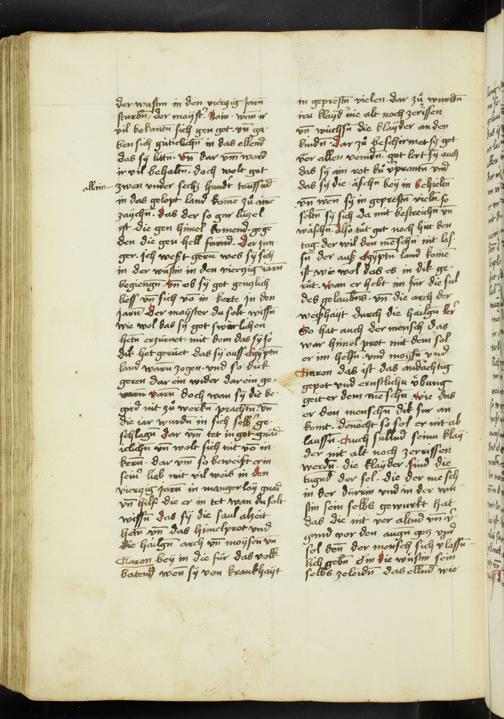 der wustin in den viertzig jarn
sturbn der mayst͛ Nain wen ir
vil bekantn sich gen got vn̄ ga
ben sich gütlichn in das ellend
das sy littn vn̄ dar vm ward
ir vil behaltn doch wolt got
allain
zwen under sechs hundt taussend
in das gelopt land kome zu aine
zaychn Das der so gar lützel
ist die gen himel koment gege
den die gen hell farnd Der jun
ger Ich west gern wes sy sich
in der wustin in den viertzig jarn
begiengn vn̄ ob sy got gentzlich
liess vn̄ sich vo in kerte in den
jarn Der mayster du solt wissn
wie wol das sy got swarlichen
hetn ertzürnet mit dem das sy so
dik het gerüet das sy auss Egyptn
land warn zogen vnd so dick
gern dar ein wider dar ein ge
varn warn doch wan sy die be
gird nit zu werkn prachtn vn̄
die iar wurdn in sich selb ge
schlagn dar vm tet in got gnad
iclichn vn̄ wolt sich nit vo in
kern dar vm so beweist er in
sein lieb mit vil wais in den
viertzig jarn in manger lay gnad
vn̄ hilff die er in tet wan du solt
wissn das sy die saul altzeit
hetn vn̄ das himelprot vnd
die hailgn arch vn̄ moysen vn̄
Aaron bey in die für das volk
batend wen sy von krankhayt
in geprestn vielen dar zu wurdn
irü klayd nie alt noch zerissen
vn̄ wuchsn die klayder an den
kindn Dar zu beschirmet sy got
vor allen veindn got lert sy auch
das sy ain rot ku vprantn vnd
das sy die äschn bey in behieltn
vn̄ wen sy in geprestn vieln so
soltn sy sich da mit bestrechn vn̄
waschn Also tut got noch hüt ken
tag der wil den menschn nit las
sn der auss Egyptn land kome
ist wie wol das es in dik ge
rüt wan er hebt im für die sul
des gelaubns vn̄ die arch der
weishayt durch die hailgn ler
So hat auch der mensch das
war himel prot mit dem sol
er im helfn vnd moysen vnd
Aaron das ist das andächtig
gepet vnd ernstlichu übung
geit er dem menschn wie das
er den menschn dik sur an
komt dennocht so sol er nit ab
laussn Auch sullnd seinu klay
der nit alt noch zerrissen
werdn die klayder sind die
tugnd der sol die der mesch
in der durrin vnd in der wu
stin sein selbs gewurkt hat
das die nit vor altnd vn̄ iu
gend vor den augn gotz vnd
sol den der mensch sich vlassn
lich gebn Im die wustin sein
selbs zeleidn das ellnd wie